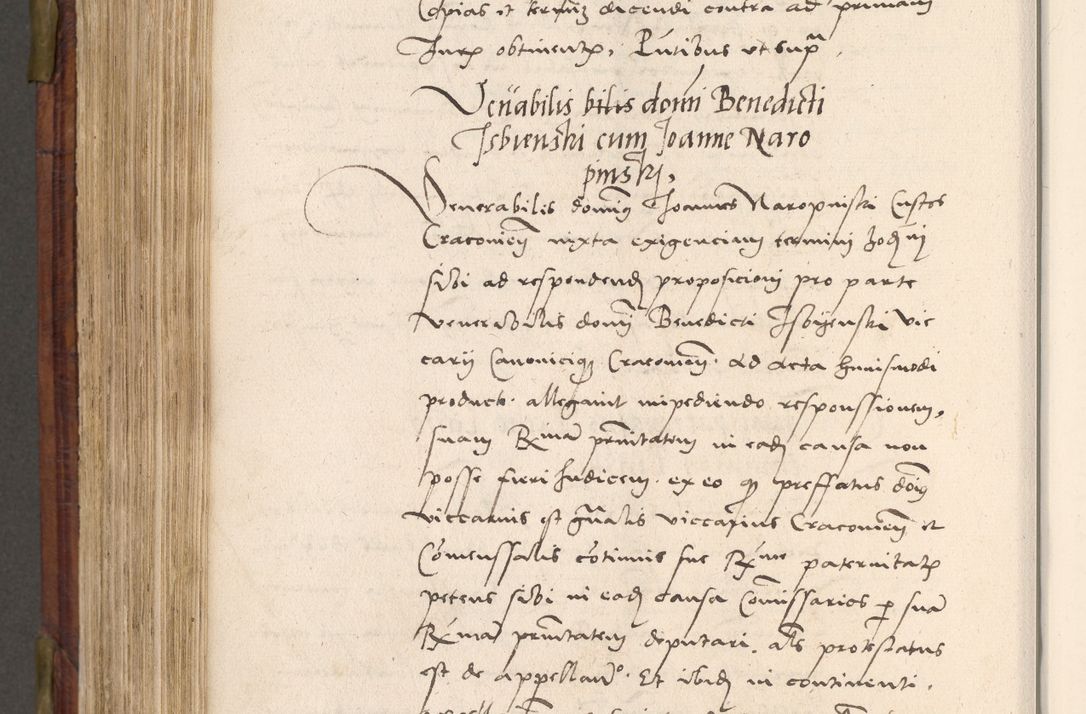 Copias et termin dicendi contra ad primam
Jurep obtinentp, Pntibus ut supra.
Venabilis bilis domi Benedicti
Isbienski cum Joanne Naro
pinskj,
Venerabilis dominus Joannes Naropinski Custos
Cracovien juxta exigencium termini hodni
sibi ad respondend proposicioni pro parte
venerabilis domi Benedicti Isbijenski vic
carii Canonicique Cracovien ad acta huiusmodi
producte. allegavit impediendo responssionem,
suam Rma prnitatem in ead causa non
posse fieri Judicem. ex eo q preffatus dnus
viccarius est gnalis viccarius Cracovien et
Comenssalis cotinuus sue Rme paternitatp
petens sibi in ead causa Comissarios p sua
Rma prnitatem deputari. als protestatus
est de appellando. Et ibid in continenti.